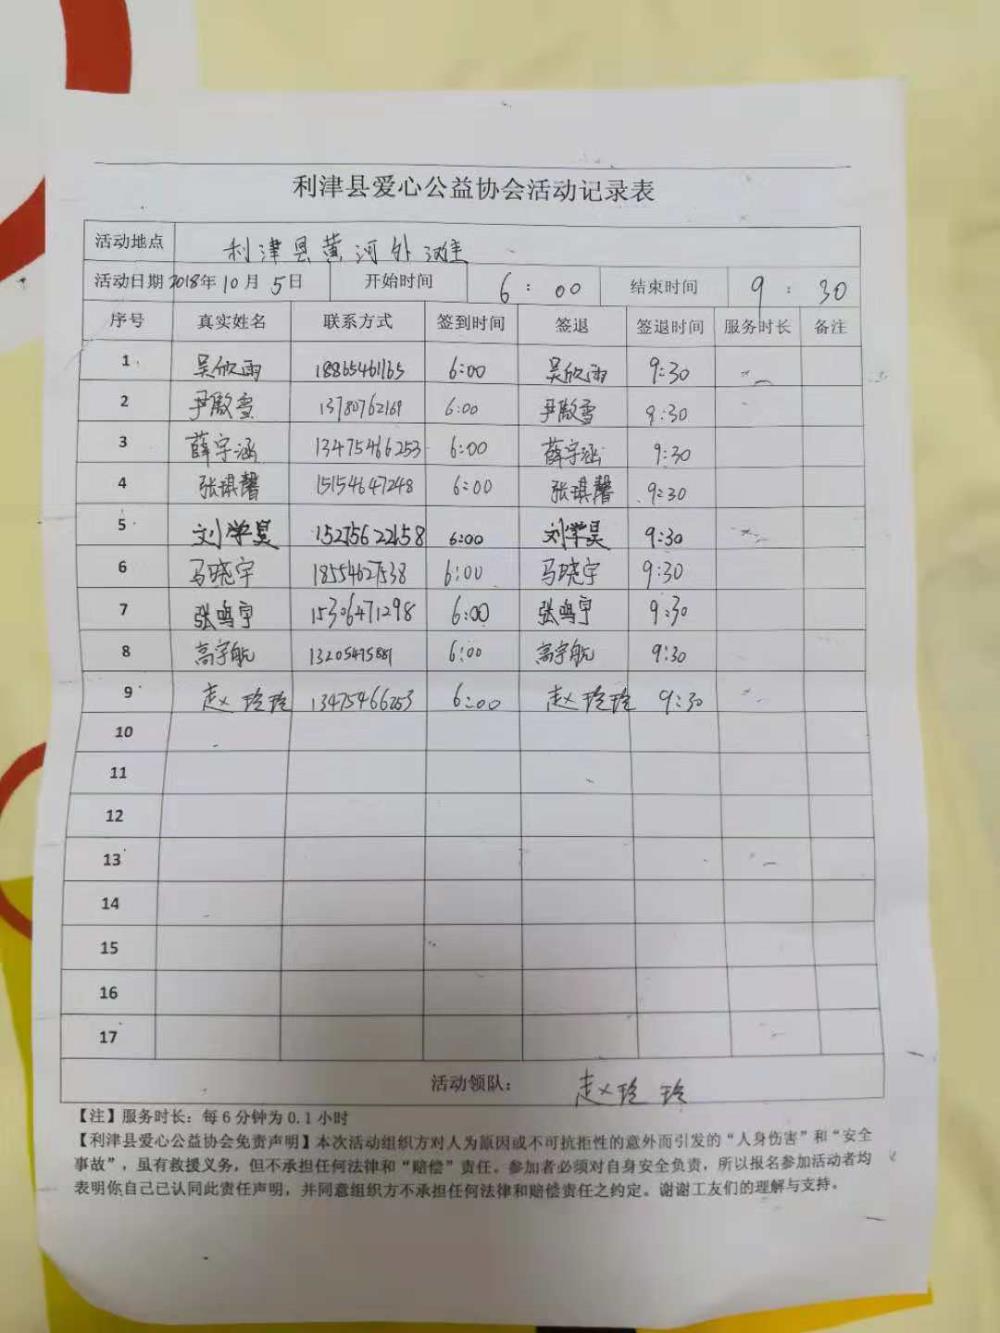 利津县爱心公益协会活动记录表
活动地点 利津县黄河外滩
活动日期 2018年10月5日 开始时间 6:00 结束时间 9:30
序号 真实姓名 联系方式 签到时间 签退 签退时间 服务时长 备注
1 吴欣雨 18865461165 6:00 吴欣雨 9:30
2 尹殿雪 13780762169 6:00 尹殿雪 9:30
3 薛宇涵 13475466253 6:00 薛宇涵 9:30
4 张琪馨 15154647248 6:00 张琪馨 9:30
5 刘学昊 15275622458 6:00 刘学昊 9:30
6 马晓宇 18554627538 6:00 马晓宇 9:30
7 张鸣宇 15306471298 6:00 张鸣宇 9:30
8 高宇航 13205475881 6:00 高宇航 9:30
9 赵玲玲 13475466253 6:00 赵玲玲 9:30
10
11
12
13
14
15
16
17
活动领队: 赵玲玲
【注】服务时长:每6分钟为0.1小时
【利津县爱心公益协会免责声明】本次活动组织方对人为原因或不可抗拒性的意外而引发的“人身伤害”和“安全
事故”,虽有救援义务,但不承担任何法律和“赔偿”责任。参加者必须对自身安全负责,所以报名参加活动者均
表明你自己已认同此责任声明,并同意组织方不承担任何法律和赔偿责任之约定。谢谢工友们的理解与支持。